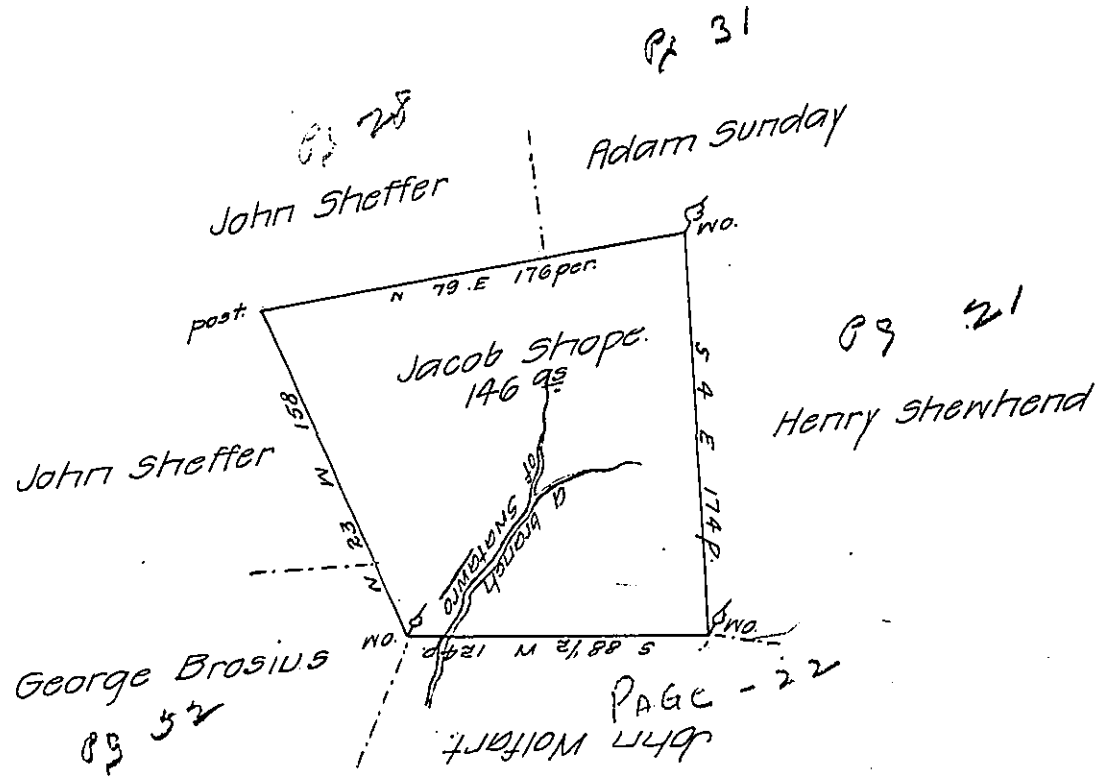 Pg 31
Pg 28
Adam Sunday
John Sheffer
wo.
N 79 .E 176 per.
post.
Pg 21
Jacob Shope.
146 as
S 4 E 174 p.
Henry Shewhend
N 23 W 158
John Sheffer
a branch
of Swatawro
wo.
wo.
S 88 1/2 W 124 p.
George Brosius
Pg 32
PAGE - 22
John Wolfart